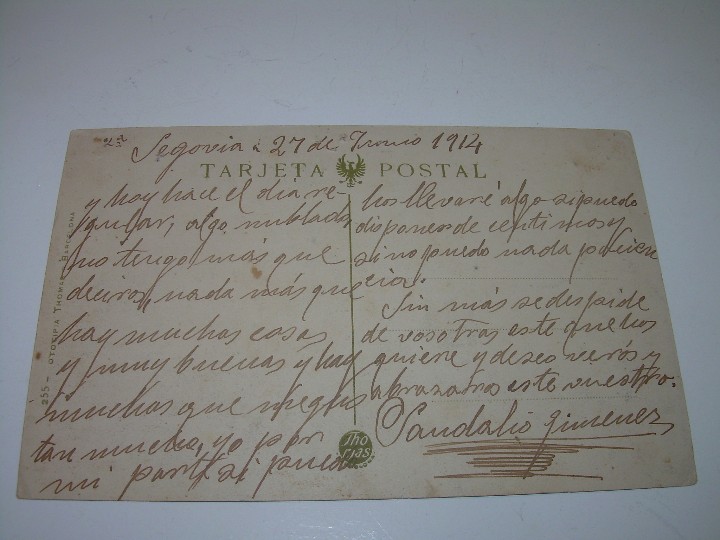 2ª
Segovia a 27 de Junio 1914
TARJETA POSTAL
y hoy hace el dia re-
gular, algo nublado
no tengo más que
deciros, nada más que
hay muchas cosas
y muy buenas y hay
muchas que me gus
tan mucho, yo por
mi parte si puedo
hos llevaré algo si puedo
disponer de centimos y
si no puedo nada pacien
cia.
Sin más se despide
de vosotras este que hos
quiere y desea verós y
abrazaros este vuestro.
Sandalio Gimenez
Tho
rias
255 - OTOTIPIA THOMAS BARCELONA